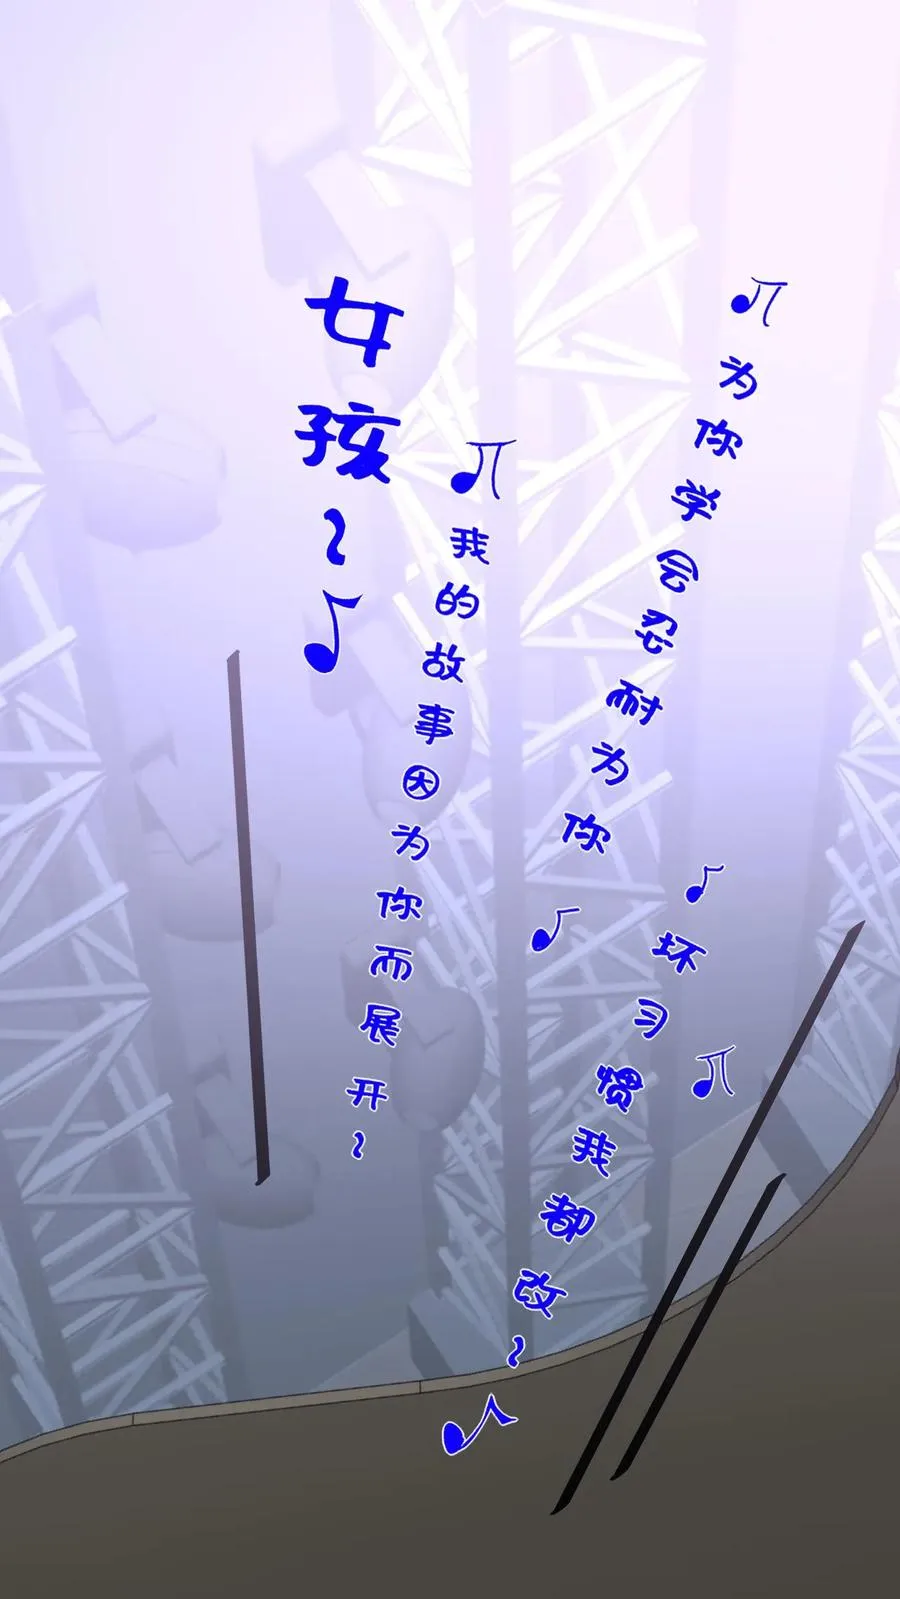 ♫为你学会忍耐为你♪
♪坏习惯我都改~♪
♫
♫我的故事因为你而展开~
女孩~♪